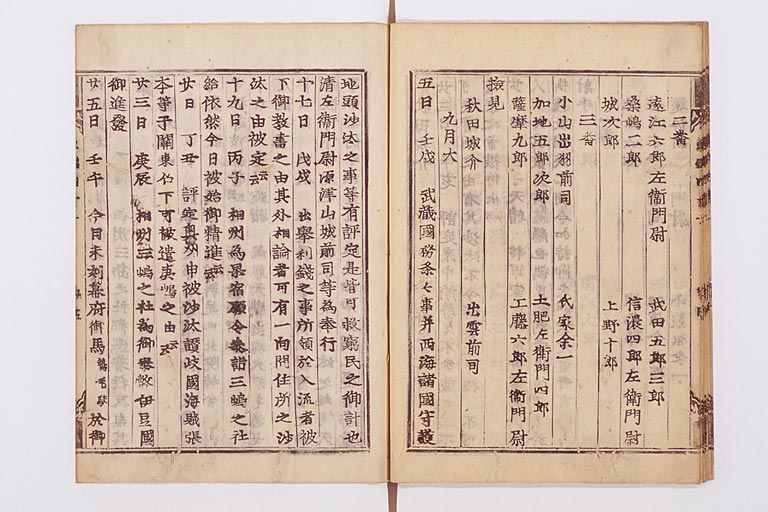 二番
遠江六郎左衛門尉 武田五郎三郎
桑嶋二郎 信濃四郎左衛門尉
城次郎 上野十郎
三番
小山出羽前司 氏家余一
加地五郎次郎 土肥左衛門四郎
薩摩九郎 工藤六郎左衛門尉
撿見
秋田城介 出雲前司
九月大
五日 壬戌 武藏國務条々事并西海諸國守護
地頭沙汰之事等有評定是皆可救窮民之御計也
清左衛門尉 山城前司等為奉行
十七日 戊戌 出舉利錢之事所領於入流者被
下御教書之由其外相論者可有一向問住所之沙
汰之由被定云云
十九日 丙子 相州為果宿願令参詣三嶋之社
給依然今日被始御精進云云
廿日 丁丑 評定 州申被沙汰讃岐國海賊張
本等于關東仍下可被遣 嶋之由云云
廿三日 庚辰 相州三嶋之社為御奉幣伊豆國
御進發
廿五日 壬午 今日未刻幕府御馬 鴾毛駮 於御